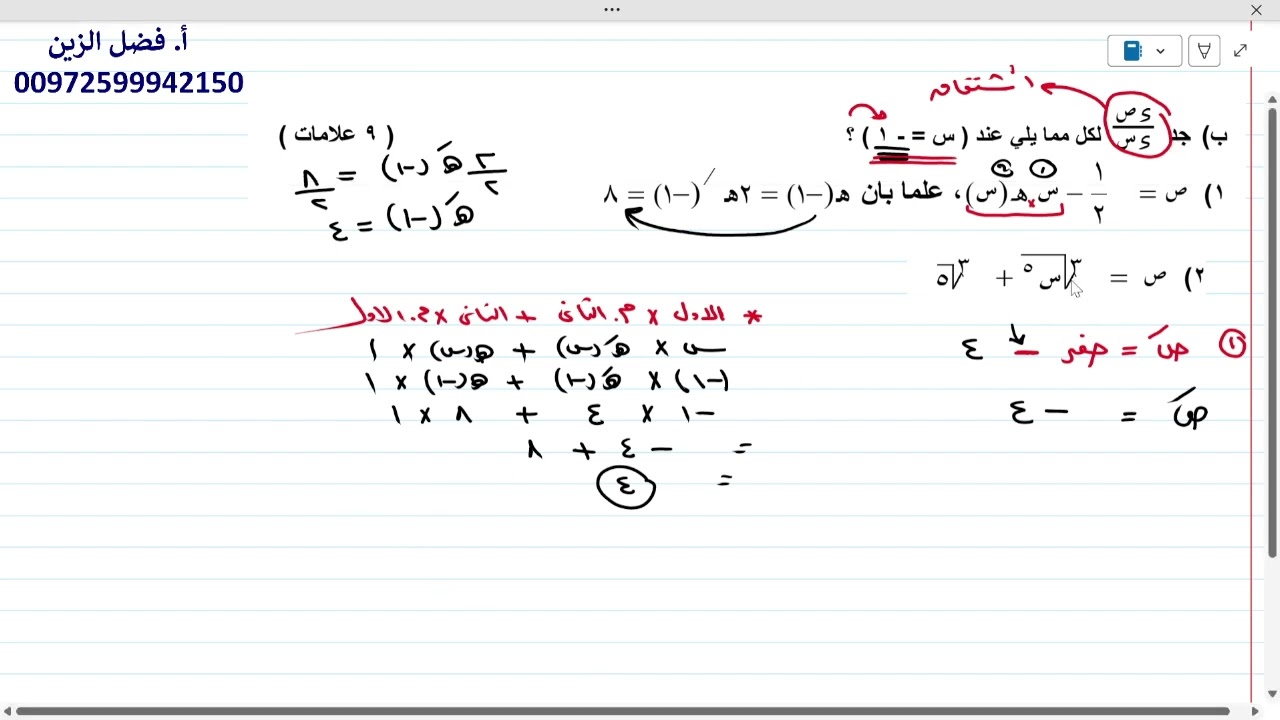 أ. فضل الزين
00972599942150
اشتقاق
ب) جد ءص/ءس لكل مما يلي عند ( س = - ١ ) ؟ ( ٩ علامات )
١) ص = ١/٢ − س هـ(س) ، علما بان هـ(−١) = ٢هـ′(−١) = ٨
① ②
٢/٢ هـَ (-١) = ٨/٢
هـَ (-١) = ٤
٢) ص = ∛س٥ + ∛٥
* الاول × م. الثاني + الثاني × م. الاول
س × هـَ(س) + هـ(س) × ١
(-١) × هـَ(-١) + هـ(-١) × ١
-١ × ٤ + ٨ × ١
= -٤ + ٨
= ٤
① صَ = صفر - ٤
صَ = -٤